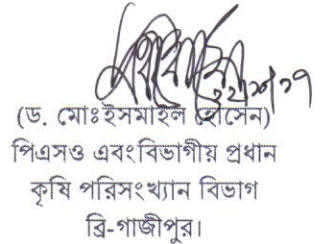 (ড. মোঃইসমাইল হোসেন)
পিএসও এবংবিভাগীয় প্রধান
কৃষি পরিসংখ্যান বিভাগ
ব্রি-গাজীপুর।